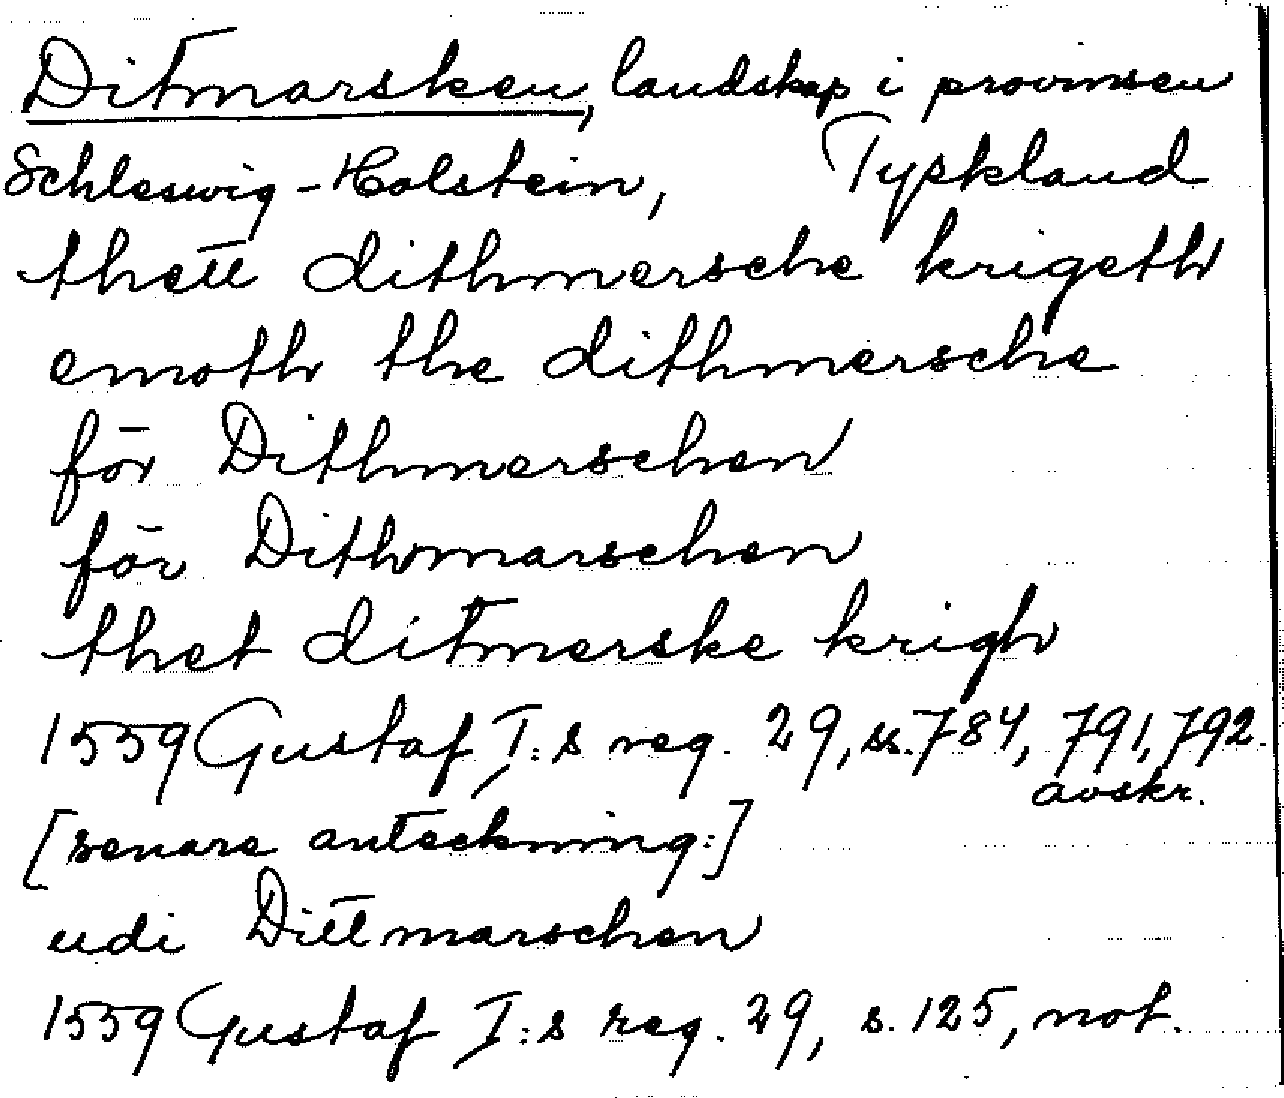 Ditmarsken, landskap i provinsen
Schleswig-Holstein, Tyskland
thett dithmersche krigeth
emoth the dithmersche
för Dithmerschen
för Dithmarschen
thet ditmerske krigh
1559 Gustaf I:s reg. 29, ss. 784, 791, 792.
avskr.
[senare anteckning:]
udi Dittmarschen
1559 Gustaf I:s reg. 29, s. 125, not.